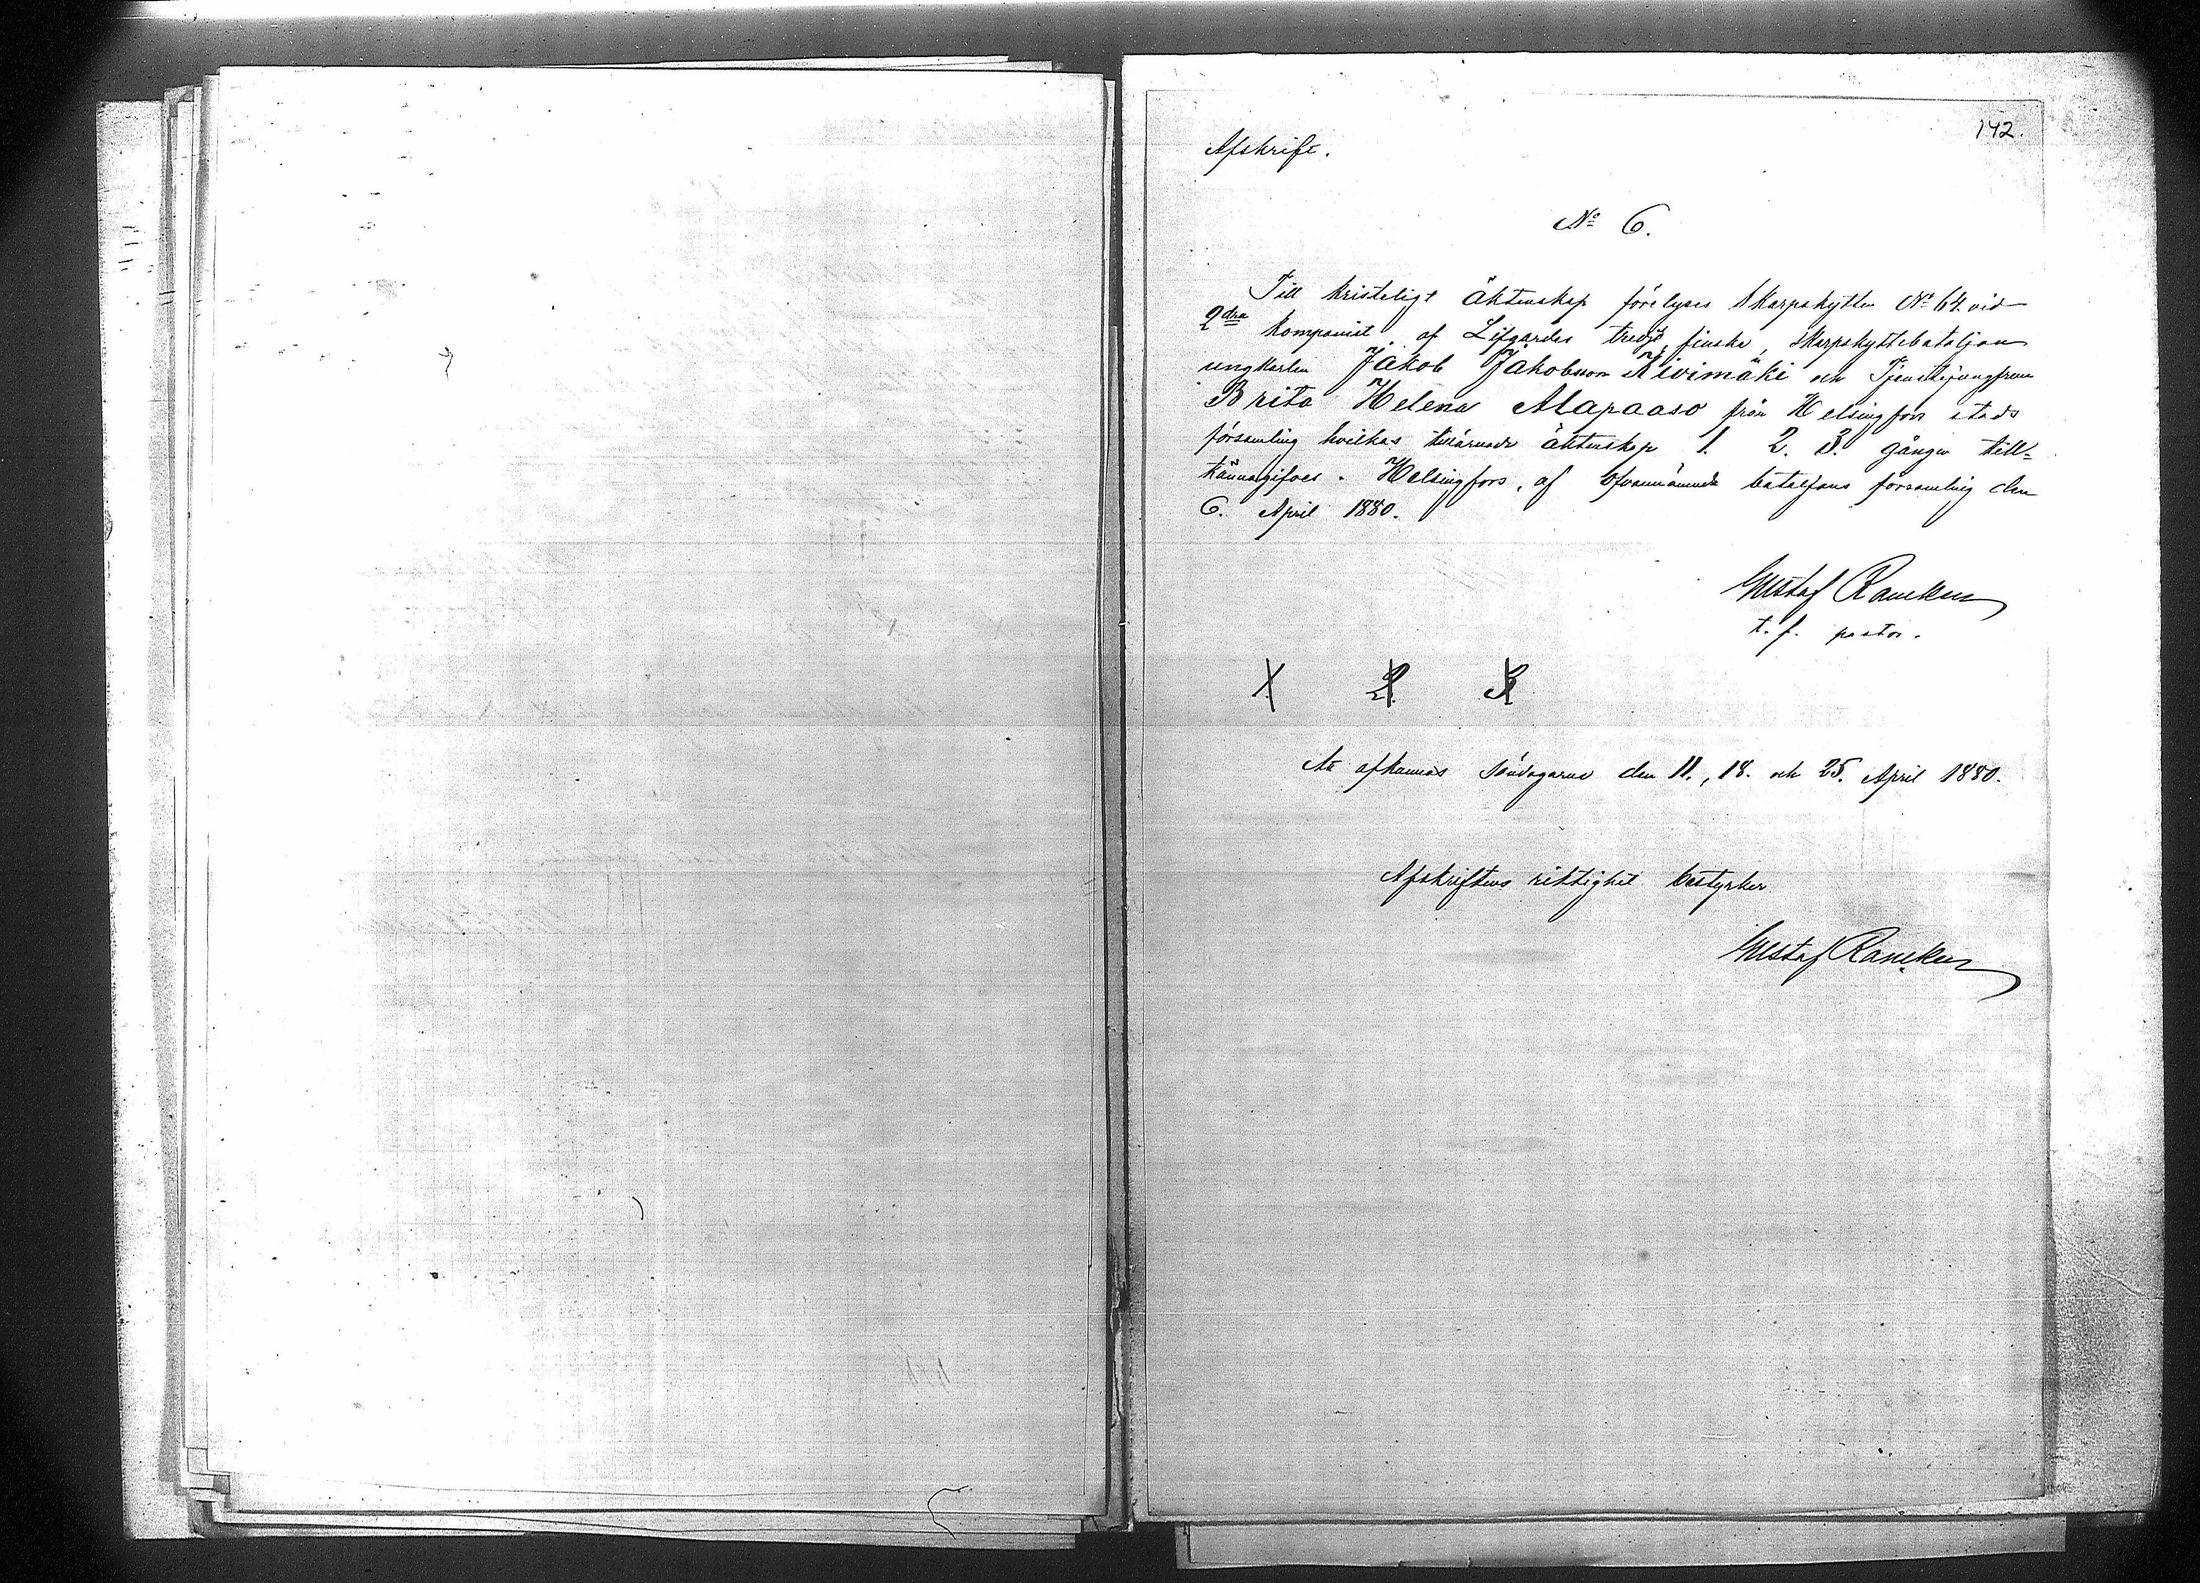 142.
Afskrift.
No 6.
Till kristeligt äktenskap förelyses Skarpskytten No 64 vid
2dra kompaniet af Lifgardes tredje finska Skarpskyttebataljon
ungkarlen Jakob Jakobsson Kivimäki och Tjenstejungfrun
Brita Helena Alapaaso från Helsingfors stads
församling hvilkas tillärnade äktenskap 1. 2. 3. gången till-
kännagifves. Helsingfors, af ofvannämnde bataljons församling den
6. April 1880.
Gustaf Rancken
t. f. pastor.
1. 2. 3.
Att afkunnas Söndagarne den 11., 18. och 25. April 1880.
Afskriftens riktighet bestyrker
Gustaf Rancken